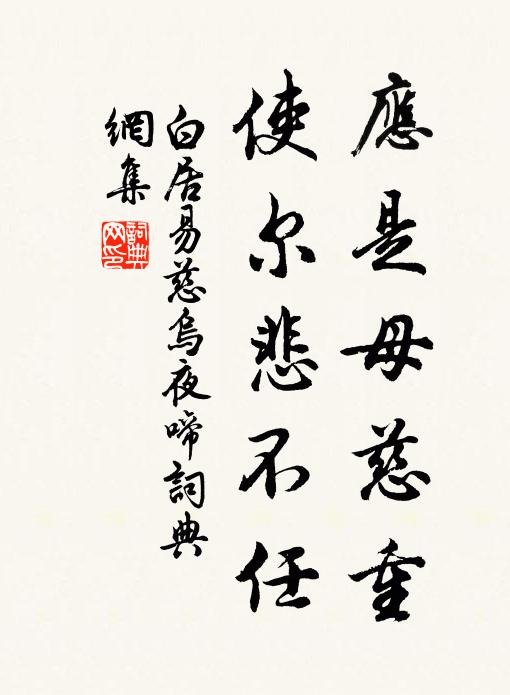 應是母慈重
使尔悲不任
白居易慈烏夜啼詞典
網集
詞典
网印